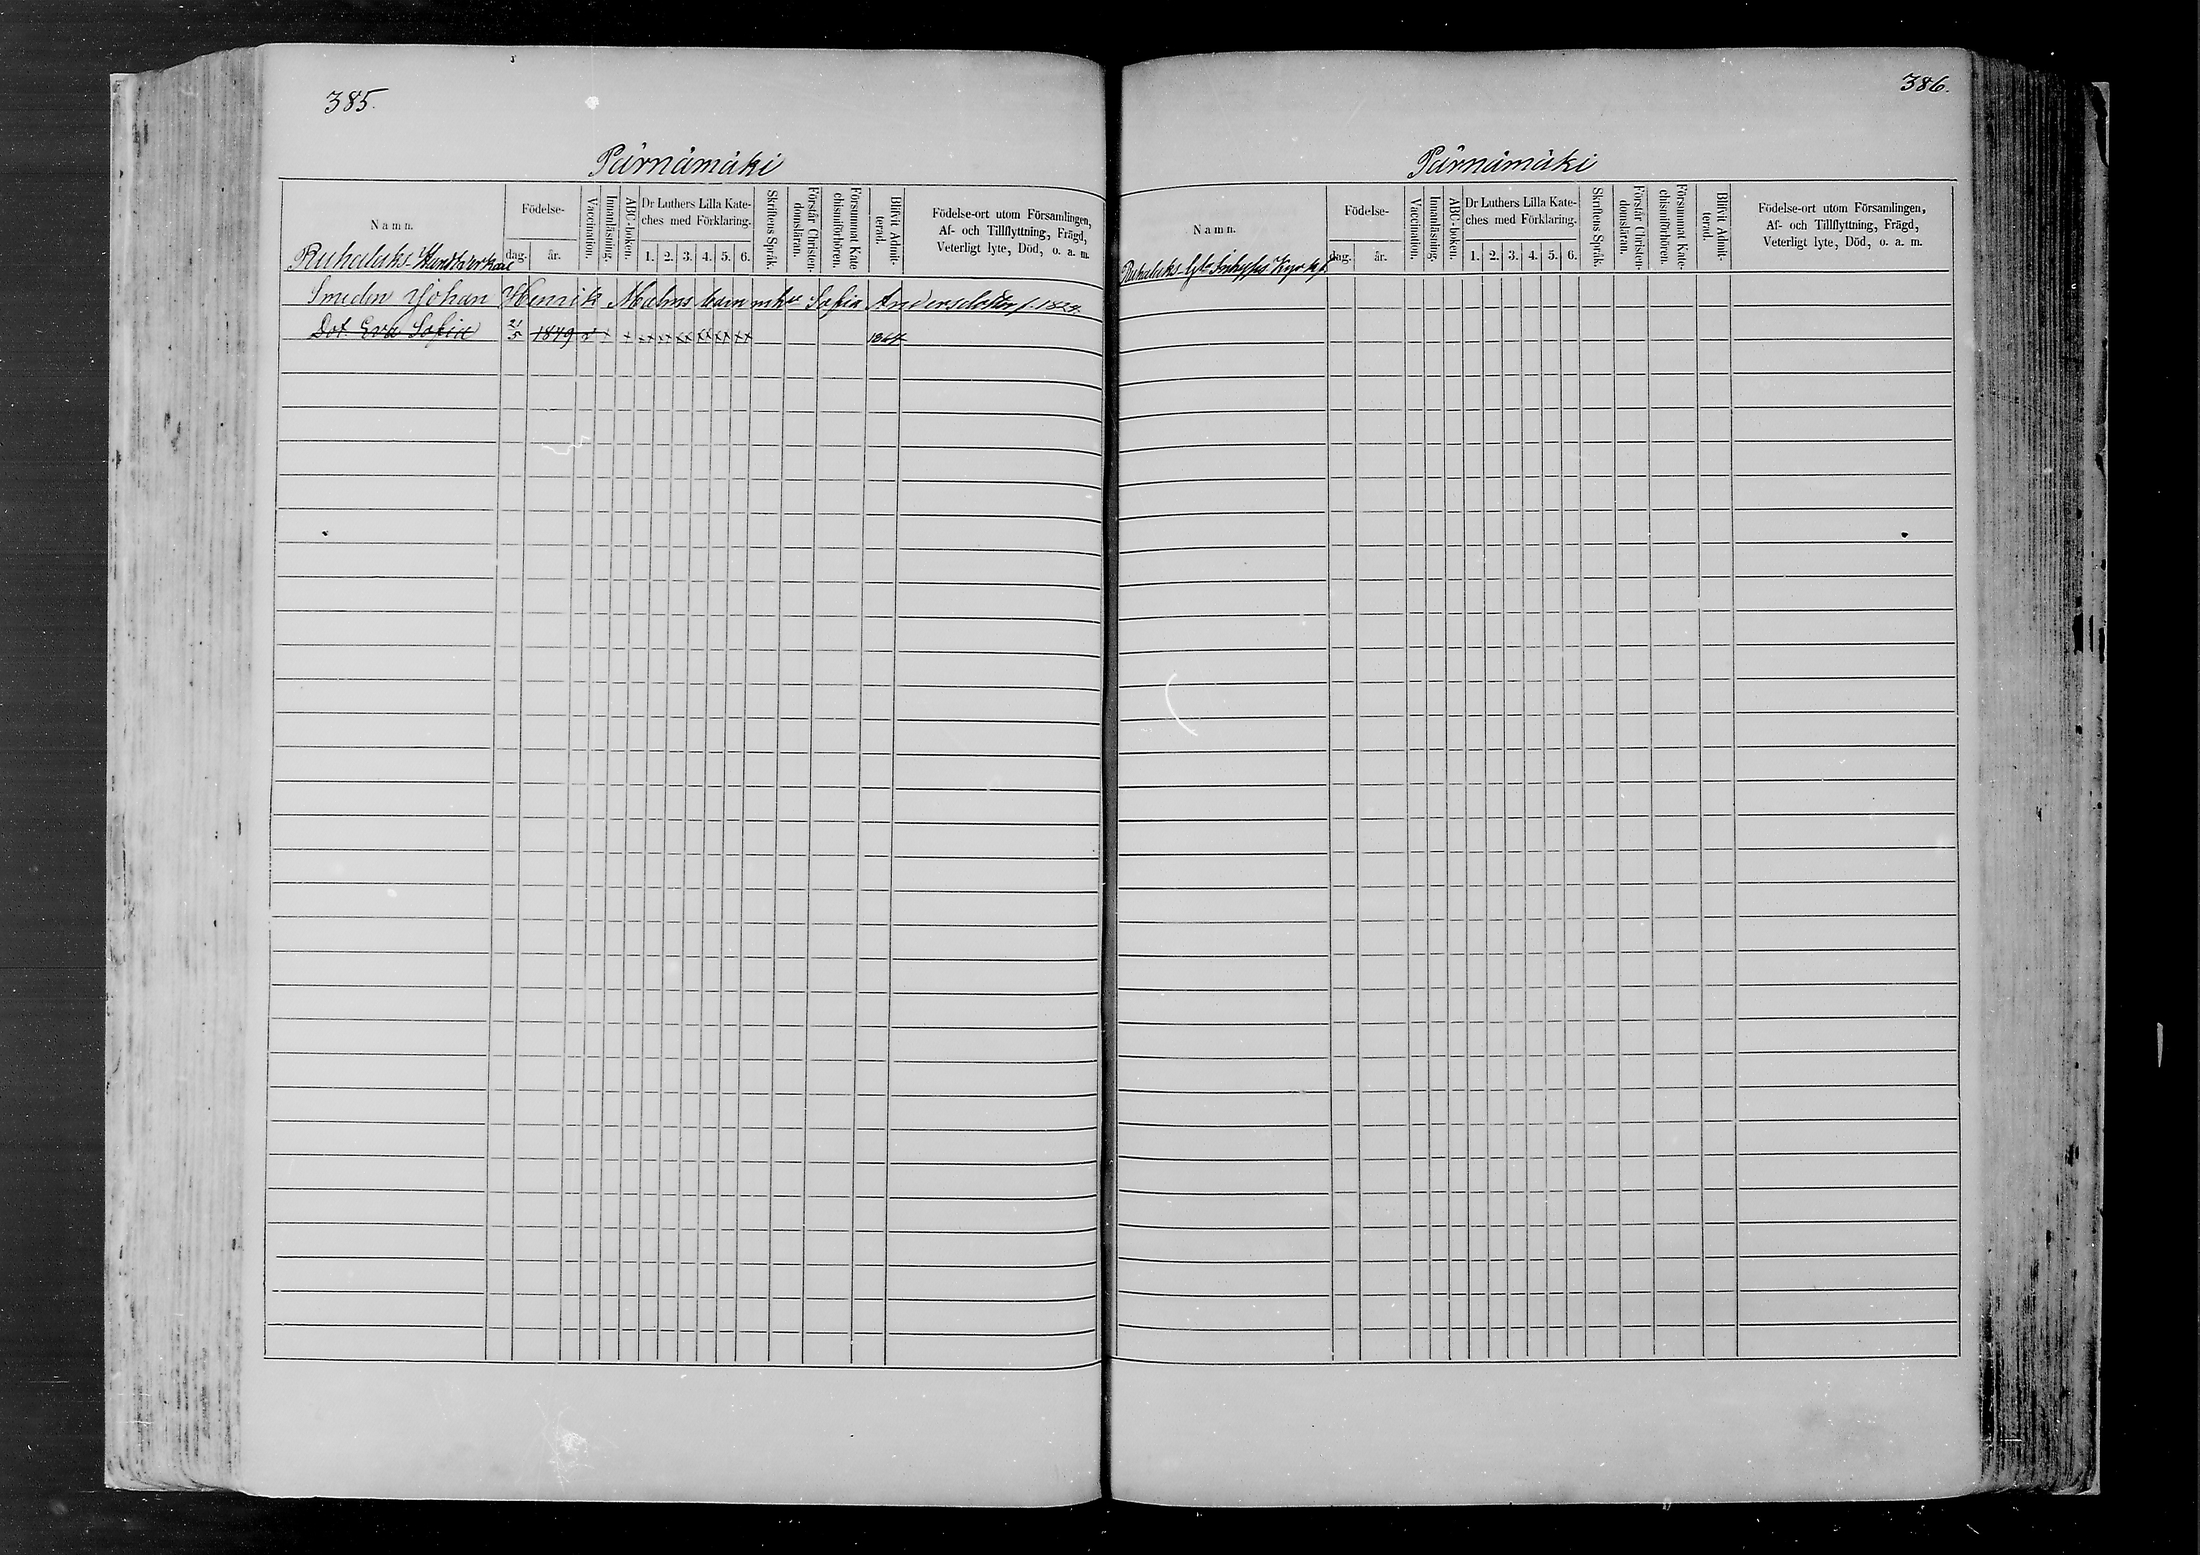 385.
Pärnämäki
Namn.
Födelse-
dag.
år.
Vaccination.
Innanläsning.
ABC-boken.
Dr Luthers Lilla Kate-
ches med Förklaring.
1. 2. 3. 4. 5. 6.
Skriftens Språk.
Förstår Christen-
domsläran.
Försummat Kate
chismiförhören.
Blifvit Admit-
terad.
Födelse-ort utom Församlingen,
Af- och Tillflyttning, Frägd,
Veterligt lyte, Död, o. a. m.
Ruhaluks
Smeden Johan Henrik Malms barn m hu Sofia Andersdotter f. 1824.
Dot. Eva Sofia 21/5 1849 v + + ++ ++ ++ ++ ++ ++ 1864
386.
Pärnämäki
Namn.
Födelse-
dag.
år.
Vaccination.
Innanläsning.
ABC-boken.
Dr Luthers Lilla Kate-
ches med Förklaring.
1. 2. 3. 4. 5. 6.
Skriftens Språk.
Förstår Christen-
domsläran.
Försummat Kate-
chismiförhören.
Blifvit Admit-
terad.
Födelse-ort utom Församlingen,
Af- och Tillflyttning, Frägd,
Veterligt lyte, Död, o. a. m.
Ruhaluks